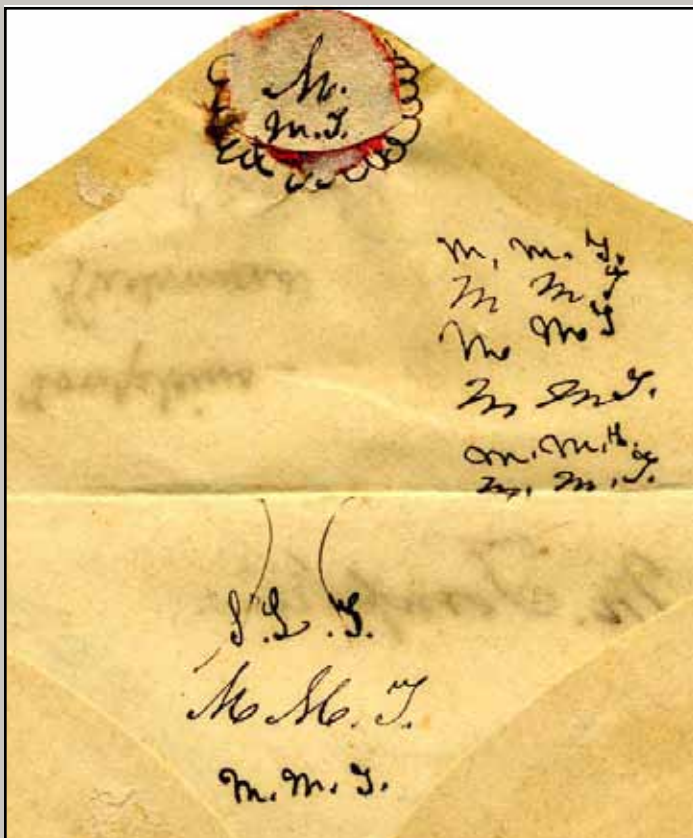 M.
M.T.
M. M. T.
M M. T
M. M T
M M T.
M. M. T.
M. M. T.
S. L. T.
M M. T.
M. M. T.